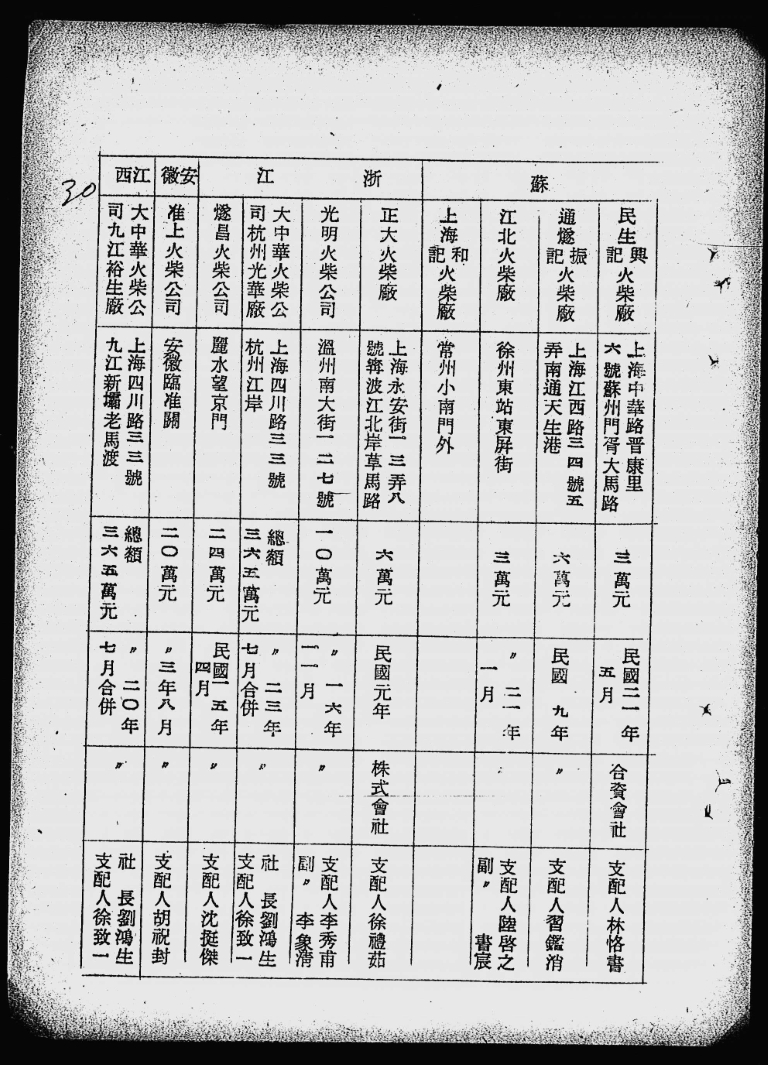 30
蘇
民生興記火柴廠
上海中華路晋康里
六號蘇州門胥大馬路
三萬元
民國二一年
五月
合資會社
支配人林恪書
通燧振記火柴廠
上海江西路三四號五
弄南通天生港
六萬元
民國九年
〃
支配人習鑑消
江北火柴廠
徐州東站東屏街
三萬元
〃二一年
一月
〃
支配人陸啓之
副〃 書宸
上海和記火柴廠
常州小南門外
浙江
正大火柴廠
上海永安街一三弄八
號寗波江北岸草馬路
六萬元
民國元年
株式會社
支配人徐禮茹
光明火柴公司
溫州南大街一二七號
一〇萬元
〃一六年
一一月
〃
支配人李秀甫
副〃李象淸
大中華火柴公
司杭州光華廠
上海四川路三三號
杭州江岸
總額
三六五萬元
〃二三年
七月合併
〃
社長劉鴻生
支配人徐致一
燧昌火柴公司
麗水望京門
二四萬元
民國一五年
四月
〃
支配人沈挺傑
安徽
准上火柴公司
安徽臨准關
二〇萬元
〃三年八月
〃
支配人胡祝封
江西
大中華火柴公
司九江裕生廠
上海四川路三三號
九江新壩老馬渡
總額
三六五萬元
〃二〇年
七月合併
〃
社長劉鴻生
支配人徐致一